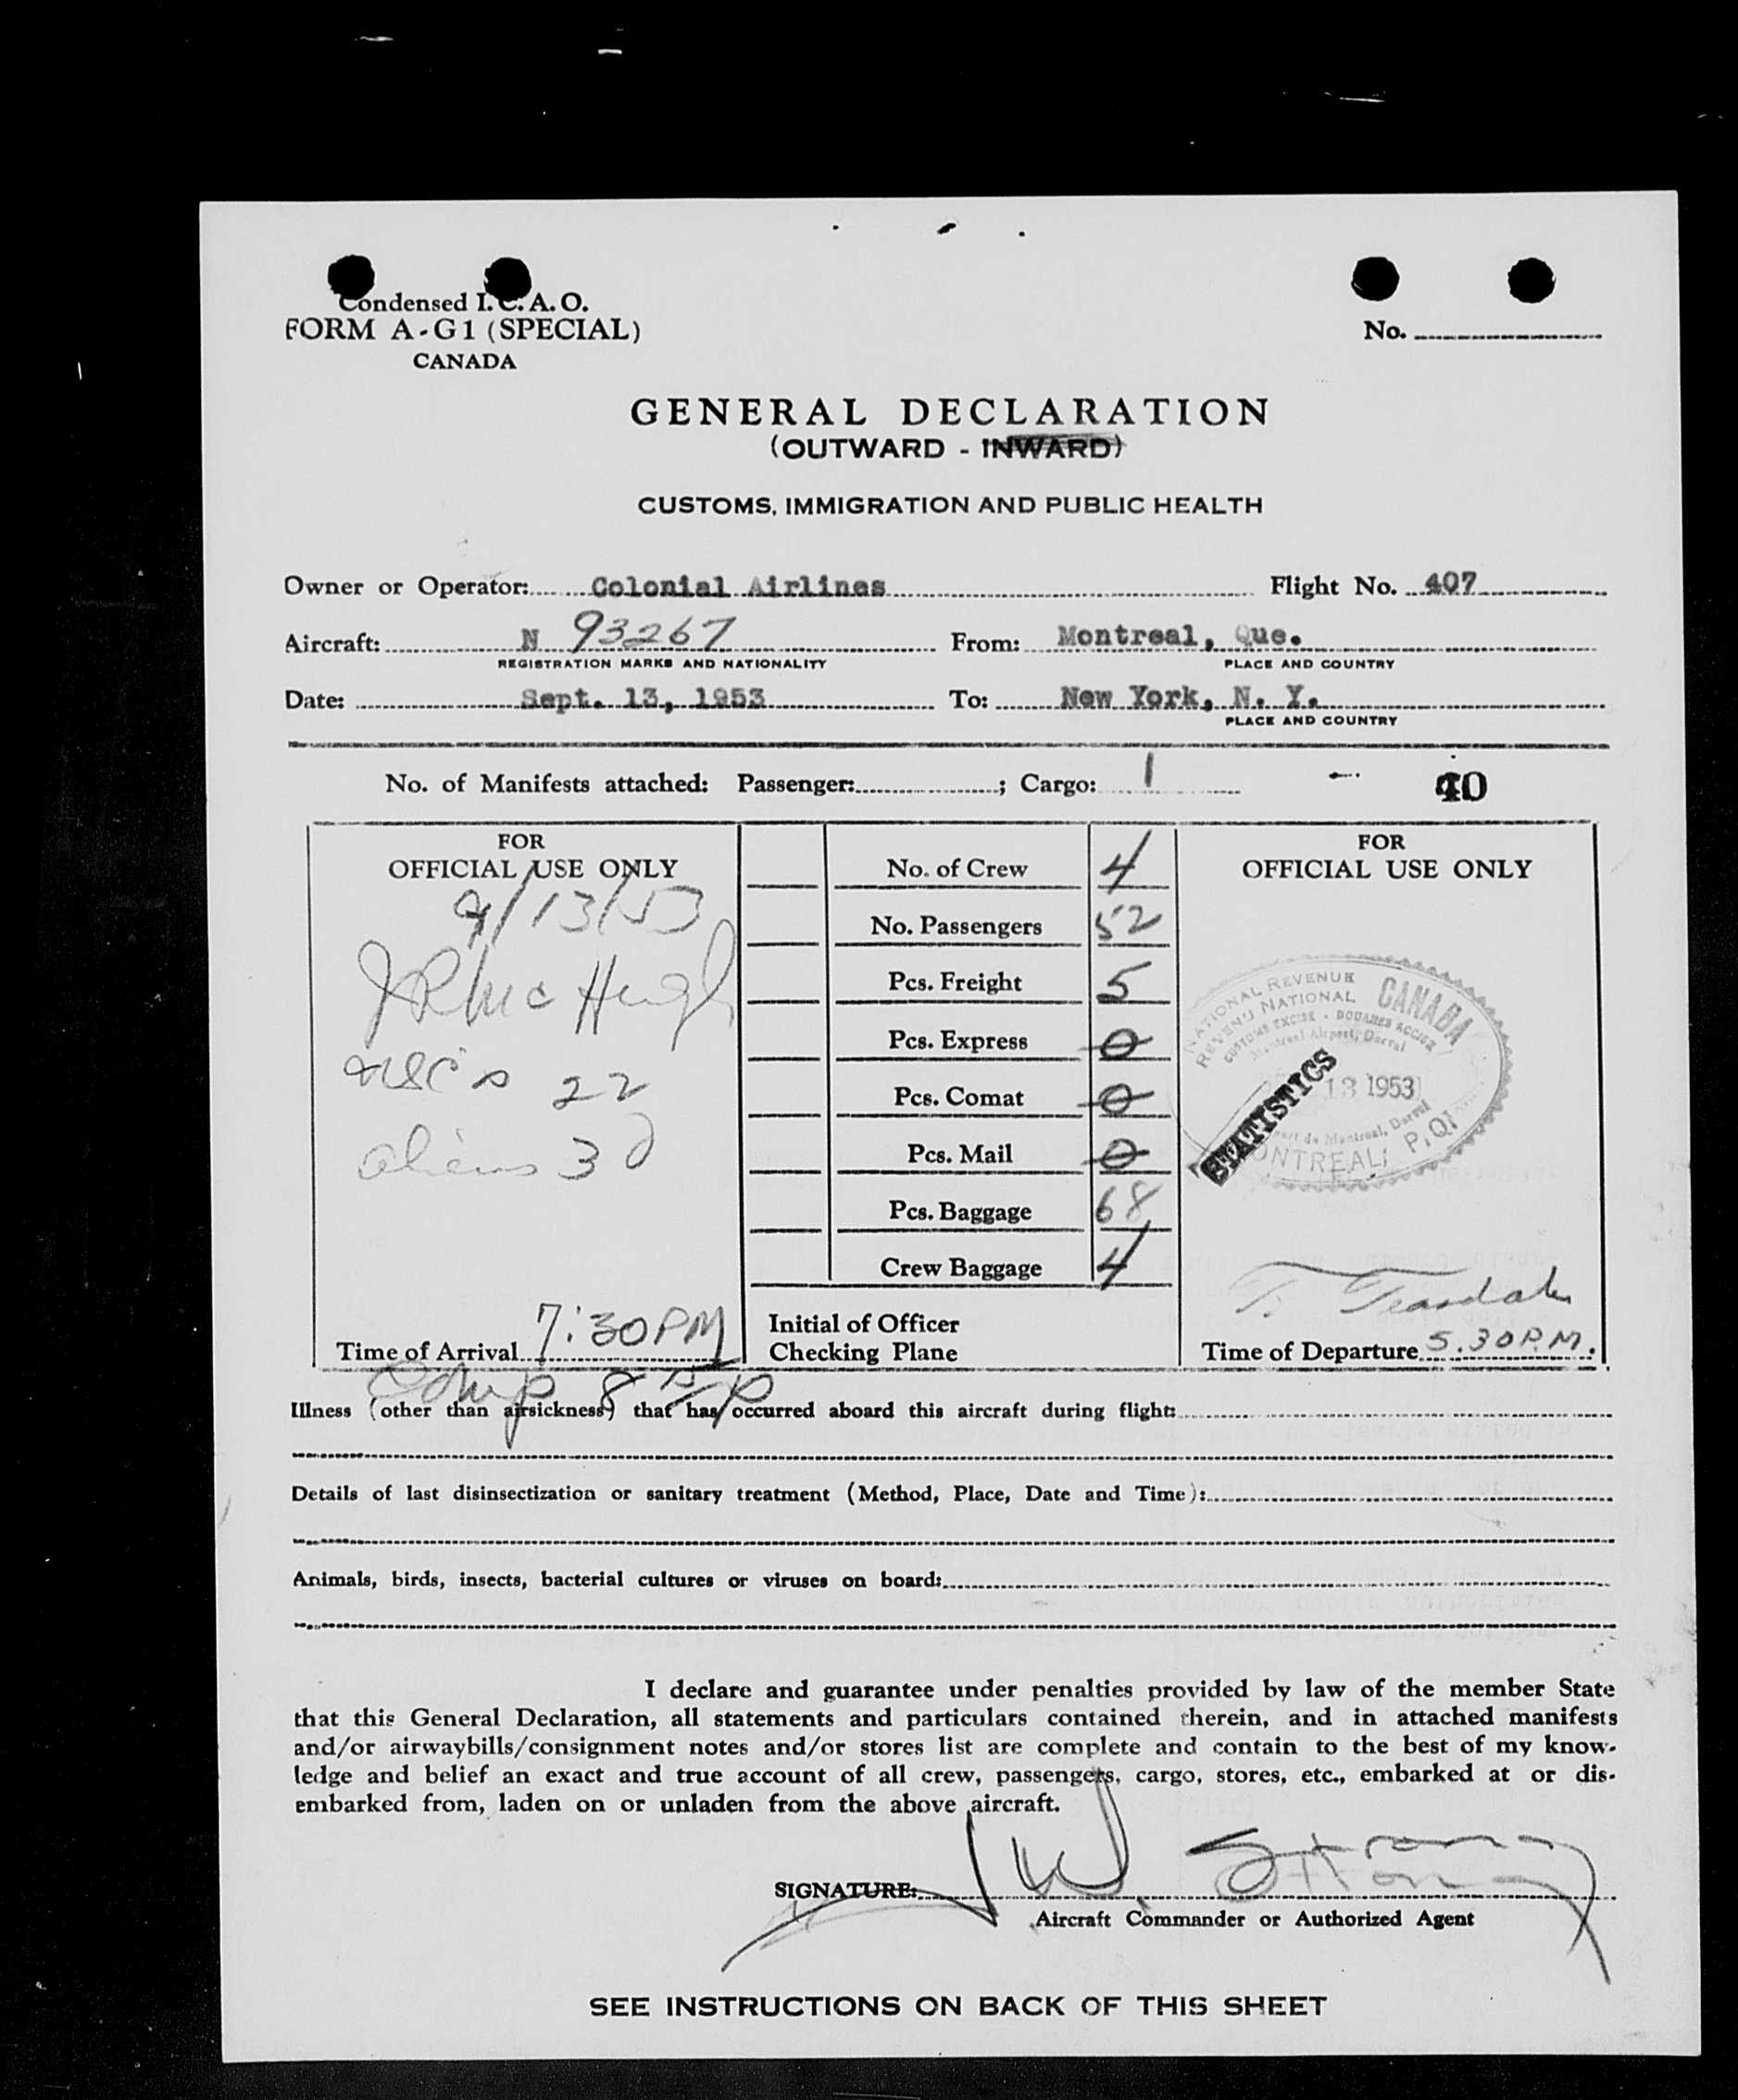 Condensed I. C. A. O.
FORM A-G1 (SPECIAL)
CANADA
No.
GENERAL DECLARATION
(OUTWARD - INWARD)
CUSTOMS, IMMIGRATION AND PUBLIC HEALTH
Owner or Operator: Colonial Airlines Flight No. 407
Aircraft: N 93267 From: Montreal, Que.
REGISTRATION MARKS AND NATIONALITY PLACE AND COUNTRY
Date: Sept. 13, 1953 To: New York, N. Y.
PLACE AND COUNTRY
No. of Manifests attached: Passenger: ; Cargo: 1 40
FOR
OFFICIAL USE ONLY
9/13/53
JR McHugh
22
aliens 30
Time of Arrival 7:30 PM
No. of Crew 4
No. Passengers 52
Pcs. Freight 5
Pcs. Express 0
Pcs. Comat 0
Pcs. Mail 0
Pcs. Baggage 68
Crew Baggage 4
Initial of Officer
Checking Plane
FOR
OFFICIAL USE ONLY
NATIONAL REVENUE
REVENU NATIONAL
CANADA
CUSTOMS EXCISE - DOUANES ACCISE
Montreal Airport, Dorval
13 1953
STATISTICS
de Montreal, Dorval
MONTREAL, P.Q.
T. Teasdale
Time of Departure 5.30 P.M.
Comp 8 15 P
Illness (other than airsickness) that has occurred aboard this aircraft during flight:
Details of last disinsectization or sanitary treatment (Method, Place, Date and Time):
Animals, birds, insects, bacterial cultures or viruses on board:
I declare and guarantee under penalties provided by law of the member State
that this General Declaration, all statements and particulars contained therein, and in attached manifests
and/or airwaybills/consignment notes and/or stores list are complete and contain to the best of my know-
ledge and belief an exact and true account of all crew, passengers, cargo, stores, etc., embarked at or dis-
embarked from, laden on or unladen from the above aircraft.
SIGNATURE: J W. Strong
Aircraft Commander or Authorized Agent
SEE INSTRUCTIONS ON BACK OF THIS SHEET